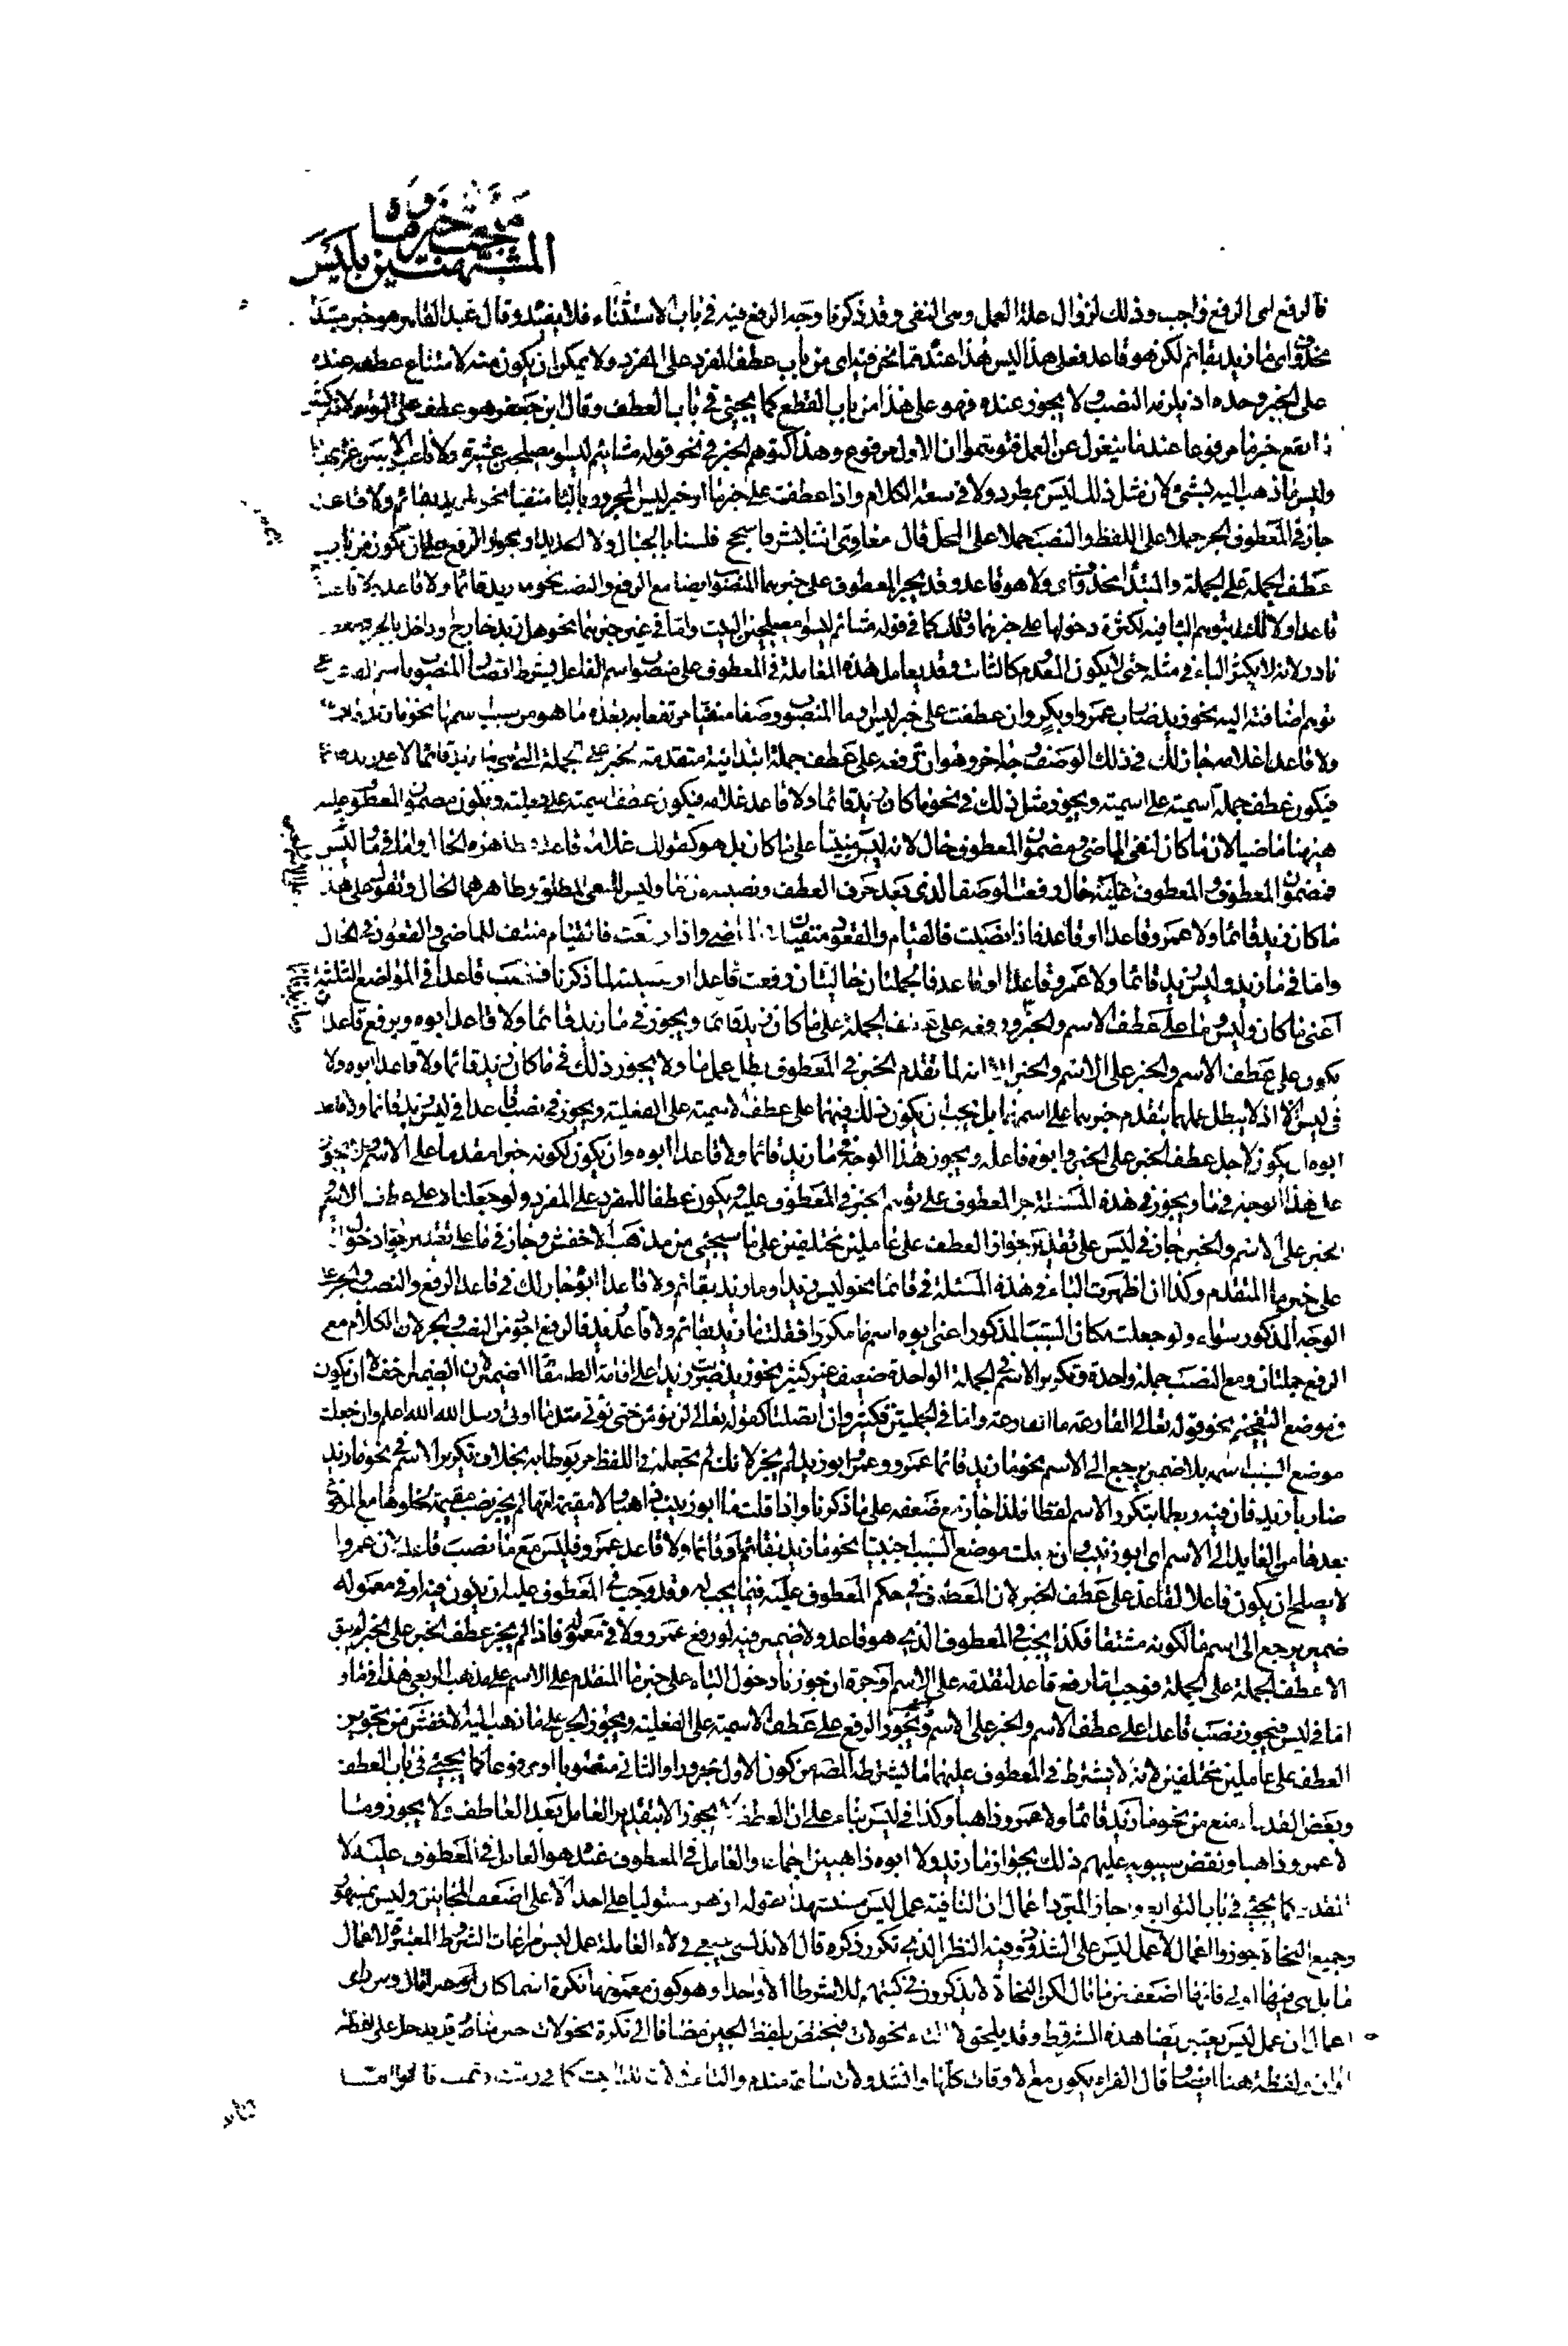 مبحث خبر ما ولا
المشبهتين بليس
فالرفع اى الرفع واجب وذلك لزوال علة العمل وهى النفى وقد ذكرنا وجه الرفع فيه فى باب الاستثناء فلا نعيده وقال عبد القاهر هو خبر مبتدأ
محذوف اى ما زيد بقائم لكن هو قاعد فعلى هذا ليس هذا عنده مما نحن فيه اى من باب عطف المفرد على المفرد ولا يمكن ان يكون منه لامتناع عطفه عنده
على الخبر وحده اذ يلزمه النصب ولا يجوز عنده فهو على هذا من باب القطع كما يجئ فى باب العطف وقال ابن جعفر هو عطف على التوهم لانه كثير
ما يقع خبر ما مرفوعا عندما ينعزل عن العمل فتوهموا ان الاول مرفوع وهذا كتوهم الجر فى نحو قوله مشائيم ليسوا مصلحين عشيرة ولا ناعب الا ببين غرابها
وليس ما ذهب اليه بشئ لان مثل ذلك ليس بمطرد ولا فى سعة الكلام واذا عطفت على خبر ما او خبر ليس المجرور بالباء منفيا نحو ما زيد بقائم ولا قاعد
جاز فى المعطوف الجر حملا على اللفظ والنصب حملا على المحل قال معاوى اننا بشر فاسجح فلسنا بالجبال ولا الحديدا ويجوز الرفع على ان يكون من باب
عطف الجملة على الجملة والمبتدأ محذوف اى ولا هو قاعد وقد يجر المعطوف على خبرهما المنصوب ايضا مع الرفع والنصب نحو ما زيد قائما ولا قاعد ولا قاعد
قاعدا ولا ذلك لتوهم الباء فيه لكثرة دخولها على خبرهما وذلك كما فى قوله مشائيم ليسوا مصلحين البيت واما فى غير خبرهما نحو هل زيد خارج وداخل بالجر
نادر لانه لا يكثر الباء فى مثله حتى لا يكون المعدوم كالثابت وقد يعامل هذه المعاملة فى المعطوف على منصوب اسم الفاعل بشرط اتصال المنصوب باسم الفاعل
توهم اضافته اليه نحو زيد ضارب عمروا وبكر وان عطفت على خبر ليس وما المنصوب وصفا منفيا مرتفعا به بعده ما هو من سبب اسمها نحو ما زيد قائما
ولا قاعدا غلامه جاز لك فى ذلك الوصف وجه اخر وهو ان ترفعه على عطف جملة ابتدائية متقدمة الخبر على الجملة التى هى ما زيد قائما
فيكون عطف جملة اسمية على اسمية ويجوز مثل ذلك فى نحو ما كان زيد قائما ولا قاعد غلامه فيكون عطف اسمية على فعلية ويكون مضمون المعطوف عليه
ههنا ماضيا لان ما كان لنفى الماضى ومضمون المعطوف حال لانه ليس مبنيا على ما كان بل هو كقولك غلامه قاعد
فمضمون المعطوف والمعطوف عليه حال وقعت الوصف الذى بعد حرف العطف
ما كان زيد قائما ولا عمرو قاعدا او قاعد فاذا نصبت فالقيام والقعود منتفيان واذا رفعت فالقيام منتف للماضى والقعود فى الحال
واما فى ما زيد وليس زيد قائما ولا عمرو قاعدا او قاعد فالجملتان حاليتان رفعت قاعدا او نصبته لما ذكرنا فنصب قاعدا فى المواضع الثلثة
اعنى ما كان وليس وما على عطف الاسم والخبر ورفعه على عطف الجملة على ما كان زيد قائما ويجوز فى ما زيد قائما ولا قاعدا ابوه ويرفع قاعدا
يكون على عطف الاسم والخبر على الاسم والخبر لانه لما تقدم الخبر فى المعطوف بطل عمل ما ولا يجوز ذلك فى ما كان زيد قائما ولا قاعدا ابوه ولا
فى ليس الا اذ لا يبطل عملهما بتقدم خبرهما على اسمهما بل يجب ان يكون ذلك فيهما على عطف الاسمية على الفعلية ويجوز فى نصب قاعدا فى ليس زيد قائما ولا قاعد
ابوه ان يكون لاجل عطف الخبر على الخبر وابوه فاعله ويجوز هذا الوجه فى ما زيد قائما ولا قاعدا ابوه وان يكون لكونه خبرا مقدما على الاسم
على هذا الوجه فى ما ويجوز فى هذه المسئلة جر المعطوف على توهم الجر فى المعطوف عليه ويكون عطفا للمفرد على المفرد ولو جعلناه على عطف الاسم
والخبر على الاسم والخبر جاز فى ليس على تقدير جواز العطف على عاملين مختلفين على ما سيجئ من مذهب الاخفش وجاز فى ما على تقدير جواز دخول
على خبر ما المتقدم وكذا ان اظهرت الباء فى هذه المسئلة فى قائما نحو ليس زيد او ما زيد بقائم ولا قاعدا ابوه جاز لك فى قاعد الرفع والنصب والجر على
الوجه المذكور سواء ولو جعلت مكان السبب المذكور اعنى ابوه اسم ما مكررا فقلت ما زيد بقائم ولا قاعد زيد فالرفع اجود من النصب والجر لان الكلام مع
الرفع جملتان ومع النصب جملة واحدة وتكرير الاسم فى الجملة الواحدة ضعيف غير كثير نحو زيد ضربت زيدا على اقامة الظاهر مقام الضمير لان الضمير اخف الا ان يكون
فى موضع التفخيم نحو قوله تعالى القارعة ما القارعة واما فى الجملتين فكثير وان اتصلتا كقوله تعالى لن نؤمن حتى نؤتى مثل ما اوتى رسل الله الله اعلم وان جعلت
موضع السبب اسمه بلا ضمير يرجع الى الاسم نحو ما زيد قائما عمرو وعمرو ابو زيد لم يجز لانك لم تجعله فى اللفظ مربوطا به بخلاف تكرير الاسم فى نحو ما زيد
ضاربا زيد فان فيه ربطا بتكرر الاسم لفظا فلذا جاز مع ضعفه على ما ذكرنا واذا قلت ما ابو زينب ذاهبا ولا مقيمة امها لم يجز نصب مقيمة لخلوها مع المرفوع
بعدها من العايد الى الاسم اى ابو زينب وان جعلت موضع السبب اجنبيا نحو ما زيد بقائم او قائما ولا قاعد عمرو فليس مع ما نصب قاعد لان عمروا
لا يصلح ان يكون فاعلا لقاعد على عطف الخبر لان المعطوف فى حكم المعطوف عليه فيما يجب له وقد وجب فى المعطوف عليه ان يكون فيه او فى معموله
ضمير يرجع الى اسم ما لكونه مشتقا فكذا يجب فى المعطوف الذى هو قاعد ولا ضمير فيه لو رفع عمرو ولا فى معموله فاذا لم يجز عطف الخبر على الخبر لم يبق
الا عطف الجملة على الجملة فوجب اما رفع قاعد لتقدمه على الاسم او جره ان جوزنا دخول الباء على خبر ما المتقدم على الاسم على مذهب الربعى هذا فى ما و
اما فى ليس فيجوز نصب قاعدا على عطف الاسم والخبر على الاسم والخبر ويجوز الرفع على عطف الاسمية على الفعلية ويجوز الجر على ما ذهب اليه الاخفش من تجويز
العطف على عاملين مختلفين لانه لا يشترط فى المعطوف عليهما ما يشترطه المصنف من كون الاول مجرورا والثانى منصوبا او مرفوعا كما يجئ فى باب العطف
وبعض القدماء منع من نحو ما زيد قائما ولا عمرو ذاهبا وكذا فى ليس بناء على ان العطف لا يجوز الا بتقدير العامل بعد العاطف ولا يجوز وما
لا عمرو ذاهبا ونقض سيبويه عليهم ذلك بجواز ما زيد ولا ابوه ذاهبين اجماعا والعامل فى المعطوف عنده هو العامل فى المعطوف عليه لا
المقدر كما يجئ فى باب التوابع واجاز المبرد اعمال ان النافية عمل ليس مستشهدا بقوله ان هو مستوليا على احد الا على اضعف المجانين وليس بمشهور
وجميع النحاة جوزوا اعمال لا عمل ليس على الشذوذ وفيه النظر الذى تكرر ذكره قال الاندلسى ينبغى فى لاء العاملة عمل ليس مراعات الشروط المعتبرة لاعمال
ما بل هى فيها اولى فانها اضعف من ما قال لكن النحاة لا يذكرون فى كتبهم الا شرطا واحدا وهو كون معمولها نكرة اسما كان او خبرا
اعمال ان عمل ليس يعتبر ايضا هذه الشروط وقد يلحق لا التاء نحو لات فيختص بلفظ الحين مضافا الى نكرة نحو لات حين مناص وقد يدخل على لفظة
اوان ولفظة هنا ايضا وقال الفراء يكون مع الاوقات كلها وانشد ولات ساعة مندم والتاء فى لات للتانيث كما فى ربت وثمت قالوا اما